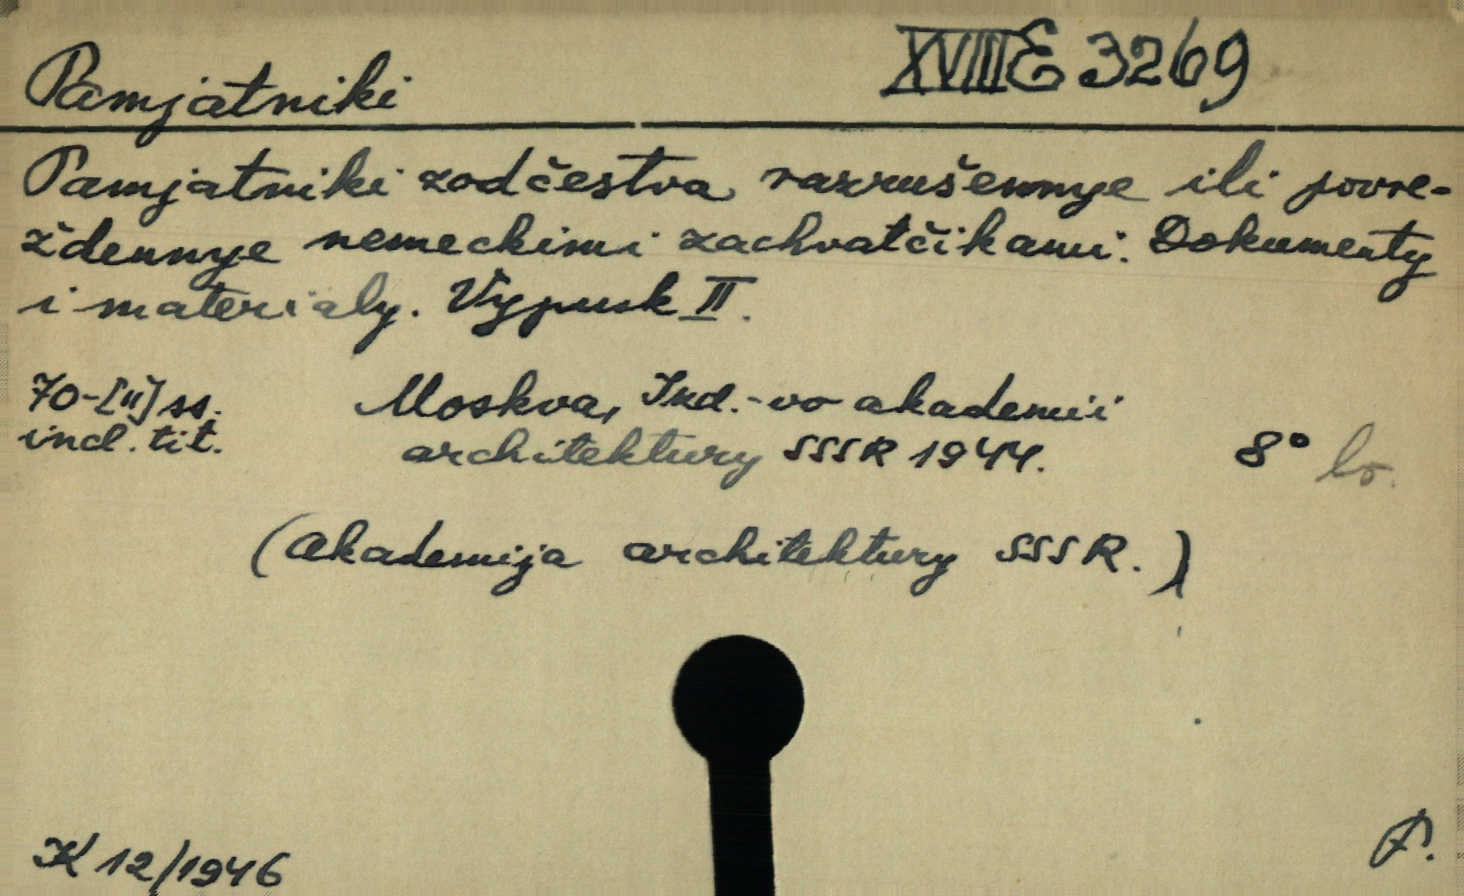 XVIII E 3269
Pamjatniki
Pamjatniki zodčestva razrušennye ili povre-
ždennye nemeckimi zachvatčikami. Dokumenty
i materialy. Vypusk II.
70-[II] ss. Moskva, Izd.-vo akademii
incl. tit. architektury SSSR 1944. 8°
(Akademija architektury SSSR.)
K 12/1946